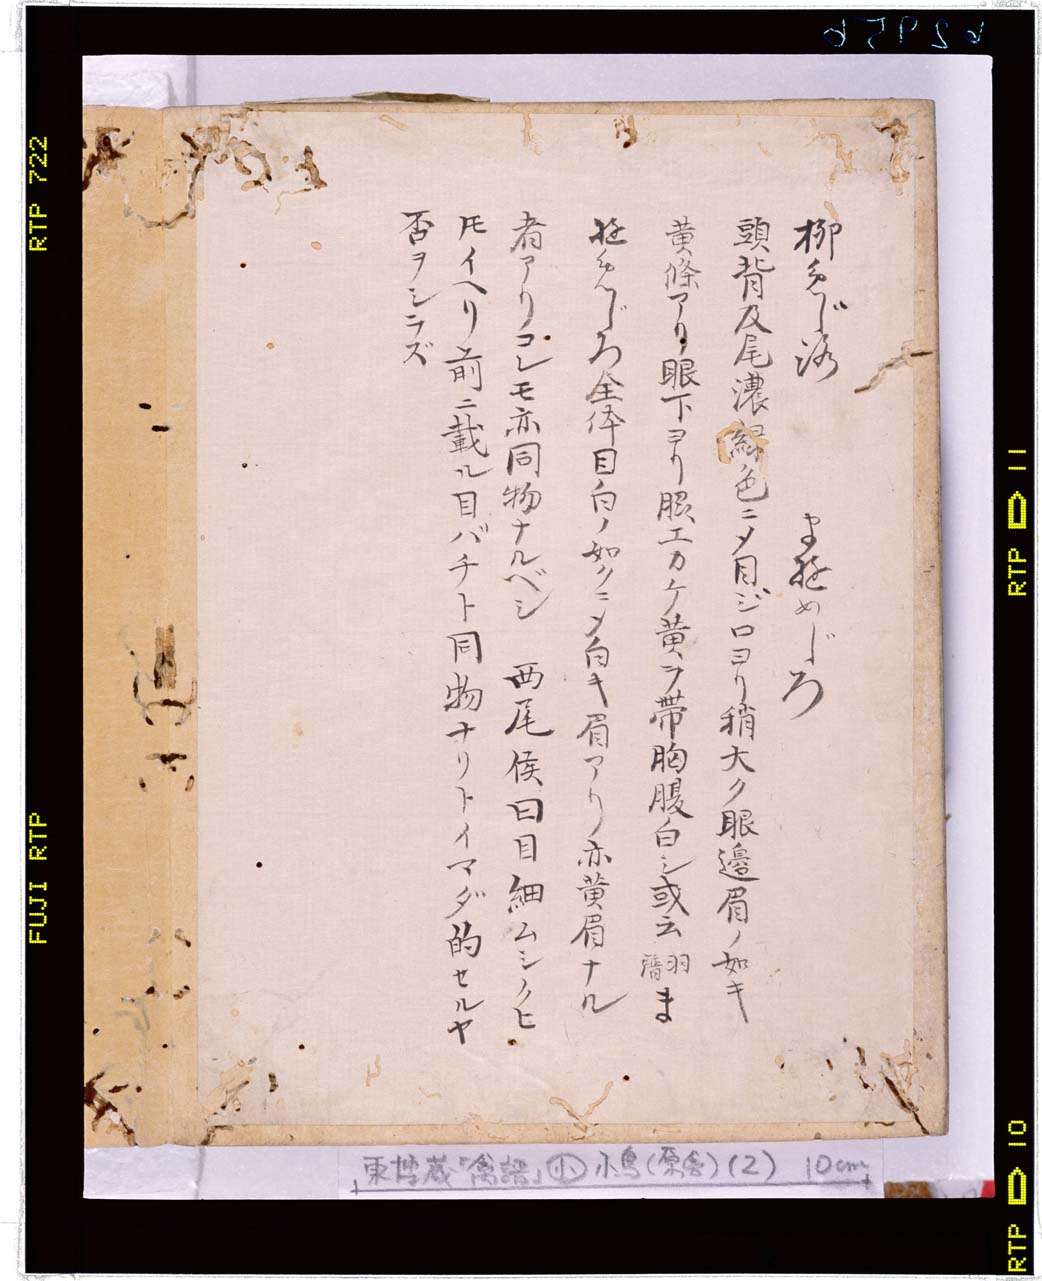 柳めじろ　まゆめじろ
頭背及尾濃緑色ニメ目ジロヨリ稍大ク眼邉眉ノ如キ
黄條アリ眼下ヨリ腮エカケ黄ヲ帯胸腹白シ或云 羽 ま
ゆめじろ全体目白ノ如クニメ白キ眉アリ亦黄眉ナル
者アリコレモ亦同物ナルベシ　西尾侯曰目細ムシノクヒ
𪜈イヘリ前ニ載ル目バチト同物ナリトイマダ的セルヤ
否ヲシラズ
東博蔵「禽譜」小 小鳥(原禽)(2) 10cm
RTP 722
FUJI RTP
RTP 11
RTP 10